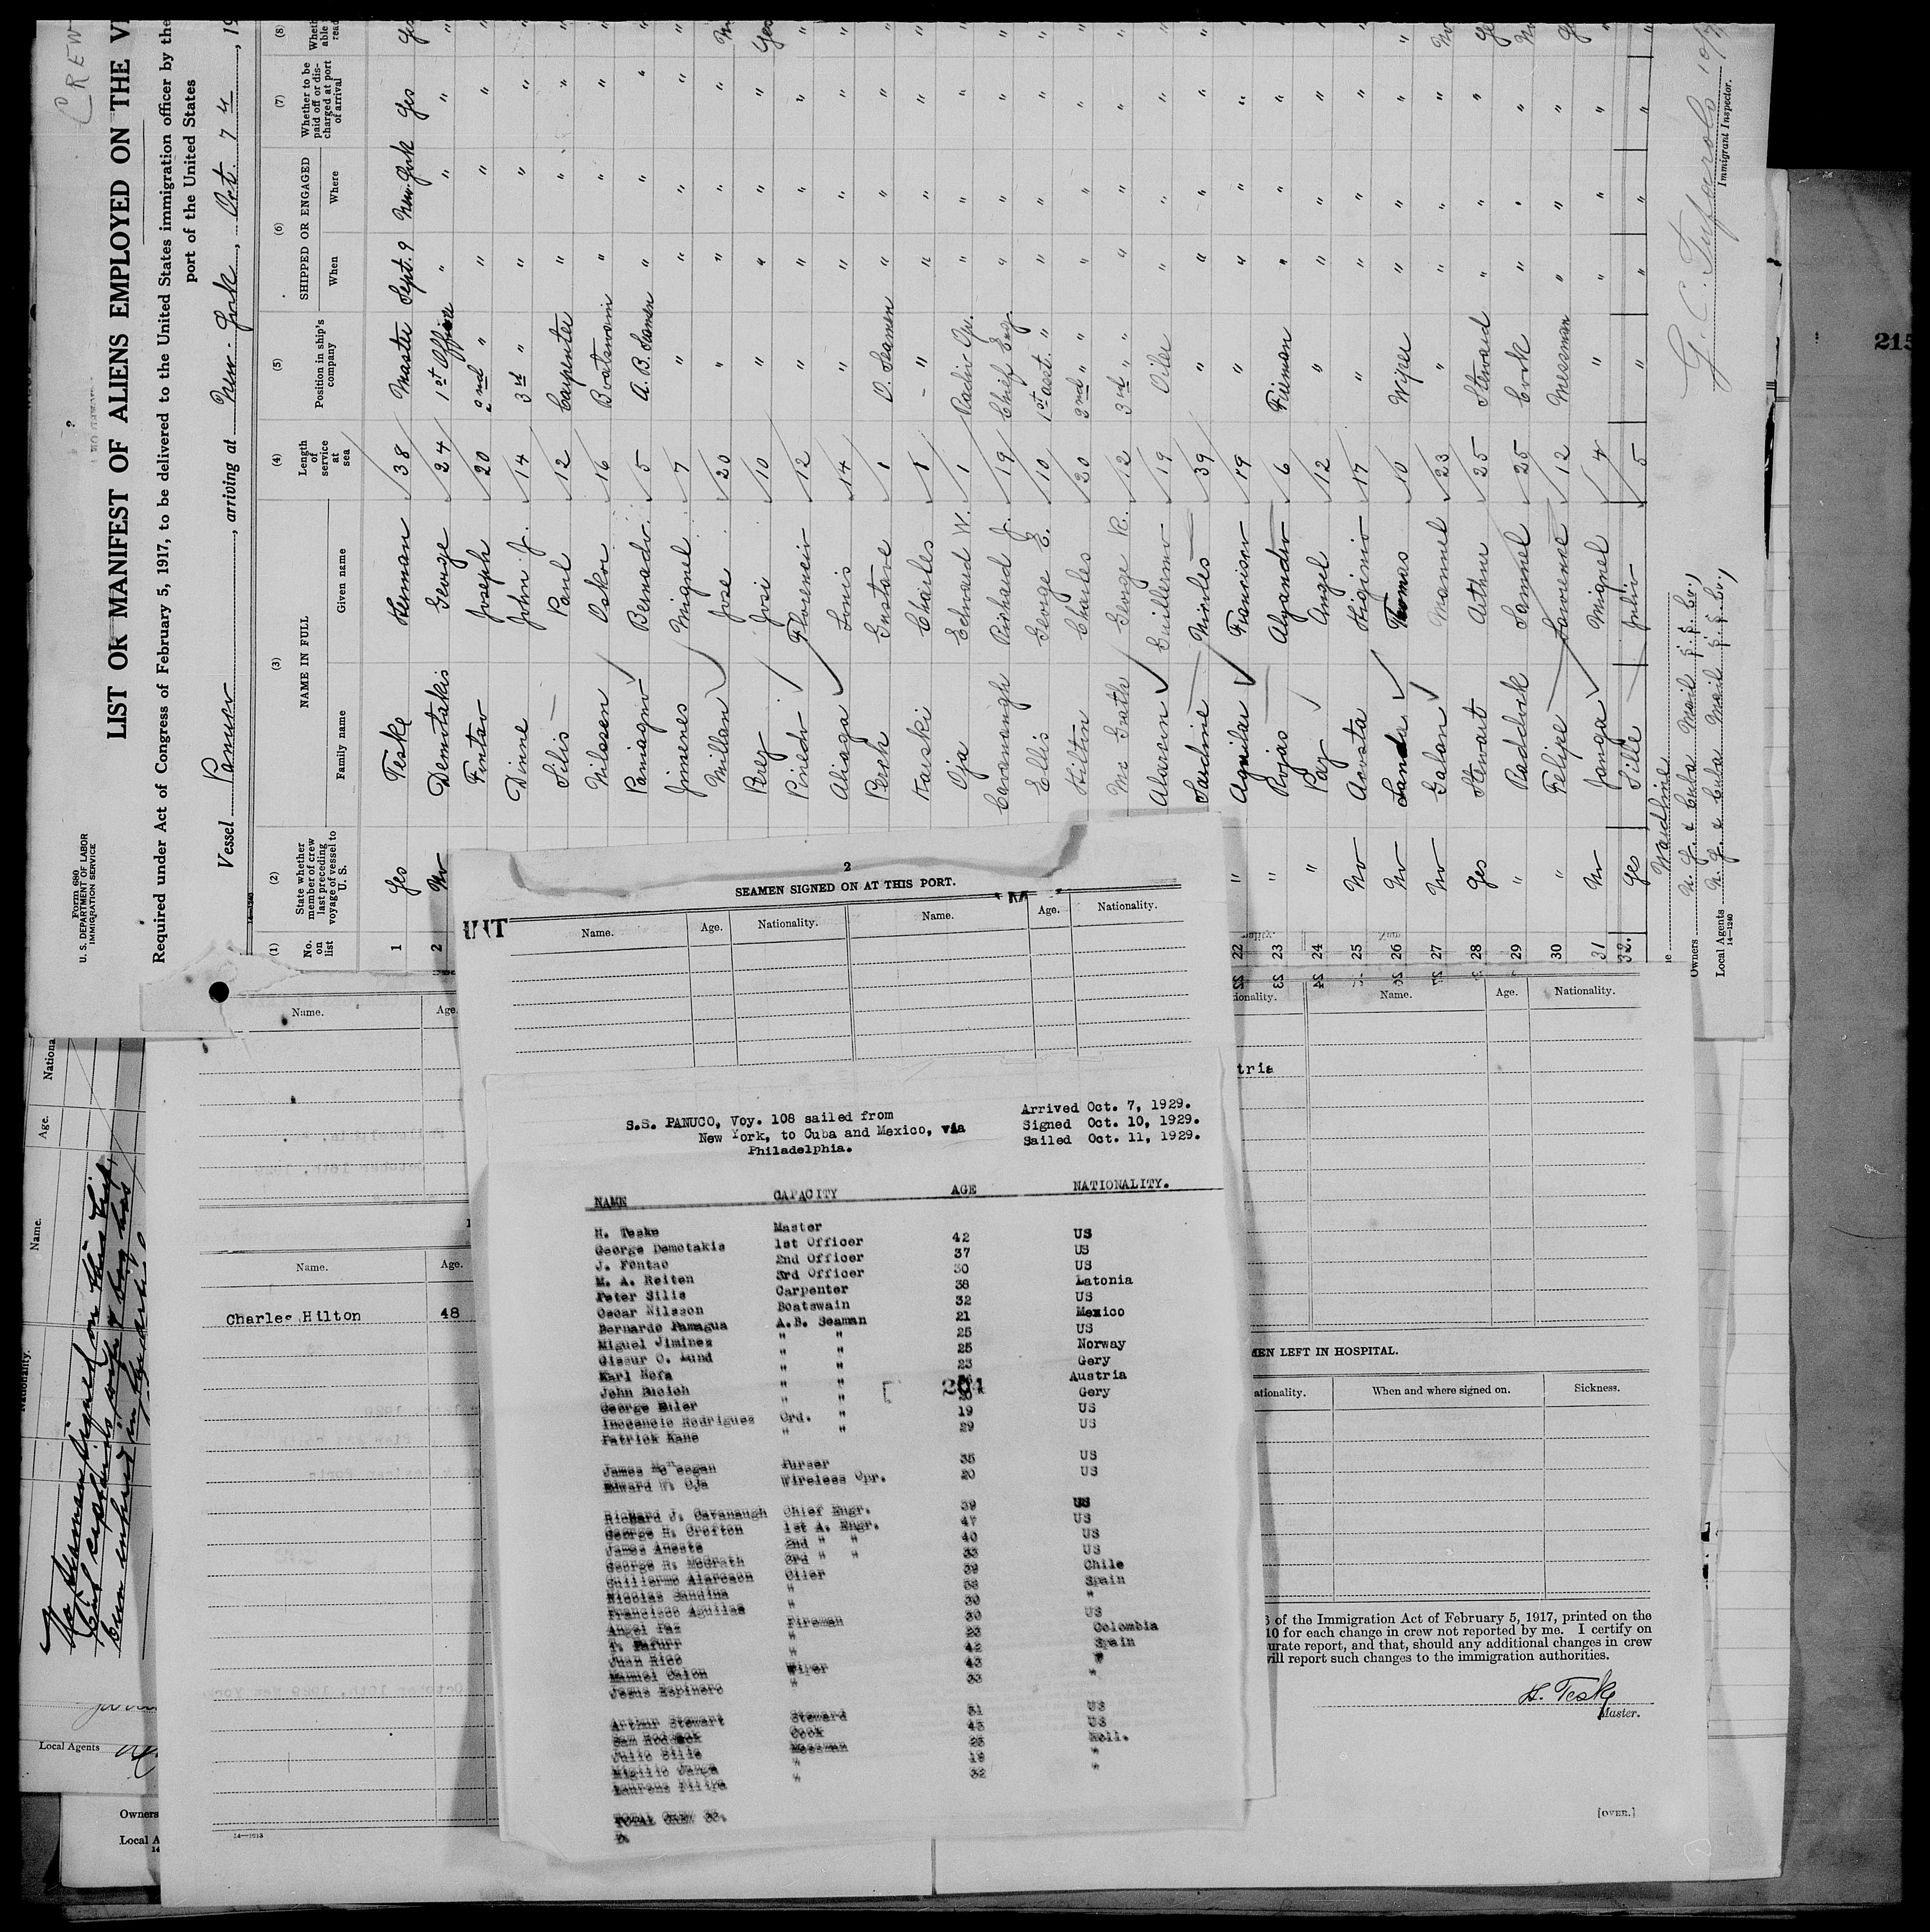 CREW
LIST OR MANIFEST OF ALIENS EMPLOYED ON THE
Required under Act of Congress of February 5, 1917, to be delivered to the United States immigration officer by the
port of the United States
Form 680
U. S. DEPARTMENT OF LABOR
IMMIGRATION SERVICE
Vessel Panuco, arriving at New York, Oct. 7
(1) (2) (3) (4) (5) (6) (7) (8)
No. on list
State whether member of crew last preceding voyage of vessel to U. S.
NAME IN FULL
Family name Given name
Length of service at sea
Position in ship's company
SHIPPED OR ENGAGED
When Where
Whether to be paid off or discharged at port of arrival
1 Yes Teske Herman 38 Master Sept. 9 New York Yes Yes
2 No Demotakis George 24 1st Officer " " "
Fintao Joseph 20 2nd " " " "
Dinne John J. 14 3rd " " " "
Silis Paul 12 Carpenter " " "
Nilssen Oskar 16 Boatswain " " "
Pamagno Bernado 5 A. B. Seaman " " "
Jimenes Miguel 7 " " " "
Millan Jose 20 " " " "
Perez Jose 10 " " " " Yes
Pinedo Florencio 12 " " " "
Aliaga Louis 14 " " " "
Perch Gustave 1 O. Seamen " " "
Karski Charles 1 " " " "
Oja Edward W. 1 Radio Op. " " "
Cavanaugh Richard J. 19 Chief Eng " " "
Ellis George E. 10 1st asst. " " " "
Hilton Charles 20 2nd " " " " "
Mc Grath George R. 12 3rd " " " " "
Alarcon Guillermo 19 Oiler " " "
Sardine Nicoles 39 " " " "
22 " Aguilar Francisco 19 " " " "
23 " Rojas Alejandro 6 Fireman " " "
24 " Paz Angel 12 " " " "
25 No Acosta Higinio 17 " " " "
26 No Landa Thomas 10 Wiper " " "
27 No Galan Manuel 23 " " " " No
28 Yes Stewart Arthur 25 Steward " " " Yes
29 " Paddock Sammel 25 Cook " " " No
30 " Felipe Lawrence 12 Messman " " " Yes
31 No Janga Miguel 4 " " " "
32. Yes Sille Julio 5 " " " "
Owners N. Y. & Cuba Mail S. S. Co.
Local Agents N. Y. & Cuba Mail S. S. Co.
14—1240
Immigrant Inspector.
215
2
SEAMEN SIGNED ON AT THIS PORT.
Name. Age. Nationality. Name. Age. Nationality.
S.S. PANUCO, Voy. 108 sailed from
New York, to Cuba and Mexico, via
Philadelphia.
Arrived Oct. 7, 1929.
Signed Oct. 10, 1929.
Sailed Oct. 11, 1929.
NAME CAPACITY AGE NATIONALITY.
H. Teske Master
George Demotakis 1st Officer 42 US
J. Fontao 2nd Officer 37 US
M. A. Reiten 3rd Officer 30 US
Peter Silis Carpenter 38 Latonia
Oscar Nilsson Boatswain 32 US
Bernardo Pamagua A.B. Seaman 21 Mexico
Miguel Jiminez " " 25 US
Gissur O. Lund " " 25 Norway
Karl Hofa " " 23 Gery
John Bucich " " Austria
George Euler " " 20 Gery
Inocencio Rodriguez Ord. " 19 US
Patrick Kane " " 29 US
201
James McKeegan Purser 35 US
Edward W. Oja Wireless Opr. 20 US
Richard J. Cavanaugh Chief Engr. 39 US
George H. Crofton 1st A. Engr. 47 US
James Aneste 2nd " " 40 US
George R. McGrath 3rd " " 33 US
Guillermo Alarcaon Oiler 39 Chile
Nicolas Sandina " 58 Spain
Francisco Aguilar " 30 "
Angel Paz Fireman 30 US
" 23 Colombia
Juan Rico " 42 Spain
Manuel Galon Wiper 43 "
Jesus Espinero " 33 "
Arthur Stewart Steward 31 US
Sam Roddock Cook 43 US
Julio Sille Messman 23 Holl.
Migilio Janga " 19 "
Laurens Filipa " 32 "
TOTAL CREW 33.
D.
Name. Age.
Name. Age.
Charles Hilton 48
14—1613
tionality. Name. Age. Nationality.
tria
MEN LEFT IN HOSPITAL.
ationality. When and where signed on. Sickness.
of the Immigration Act of February 5, 1917, printed on the
10 for each change in crew not reported by me. I certify on
urate report, and that, should any additional changes in crew
will report such changes to the immigration authorities.
H. Teske
Master.
[OVER.]
Nationality. Name. Age. Nationa
No Seaman signed on this trip
Local Agents
Owners
Local A